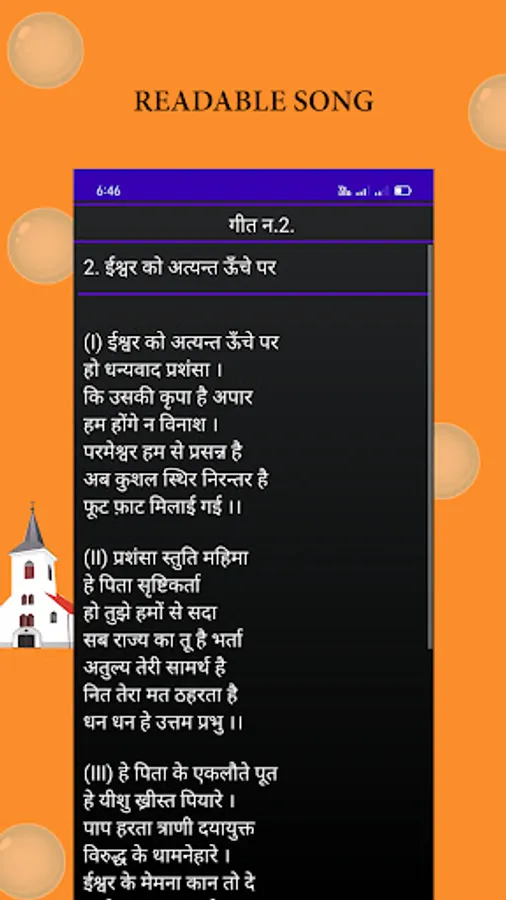 READABLE SONG
6:46
गीत न.2.
2. ईश्वर को अत्यन्त ऊँचे पर
(I) ईश्वर को अत्यन्त ऊँचे पर
हो धन्यवाद प्रशंसा ।
कि उसकी कृपा है अपार
हम होंगे न विनाश ।
परमेश्वर हम से प्रसन्न है
अब कुशल स्थिर निरन्तर है
फूट फ़ाट मिलाई गई ।।
(II) प्रशंसा स्तुति महिमा
हे पिता सृष्टिकर्ता
हो तुझे हमों से सदा
सब राज्य का तू है भर्ता
अतुल्य तेरी सामर्थ है
नित तेरा मत ठहरता है
धन धन हे उत्तम प्रभु ।।
(III) हे पिता के एकलौते पूत
हे यीशु ख्रीस्त पियारे ।
पाप हरता त्राणी दयायुक्त
विरुद्ध के थामनेहारे ।
ईश्वर के मेमना कान तो दे